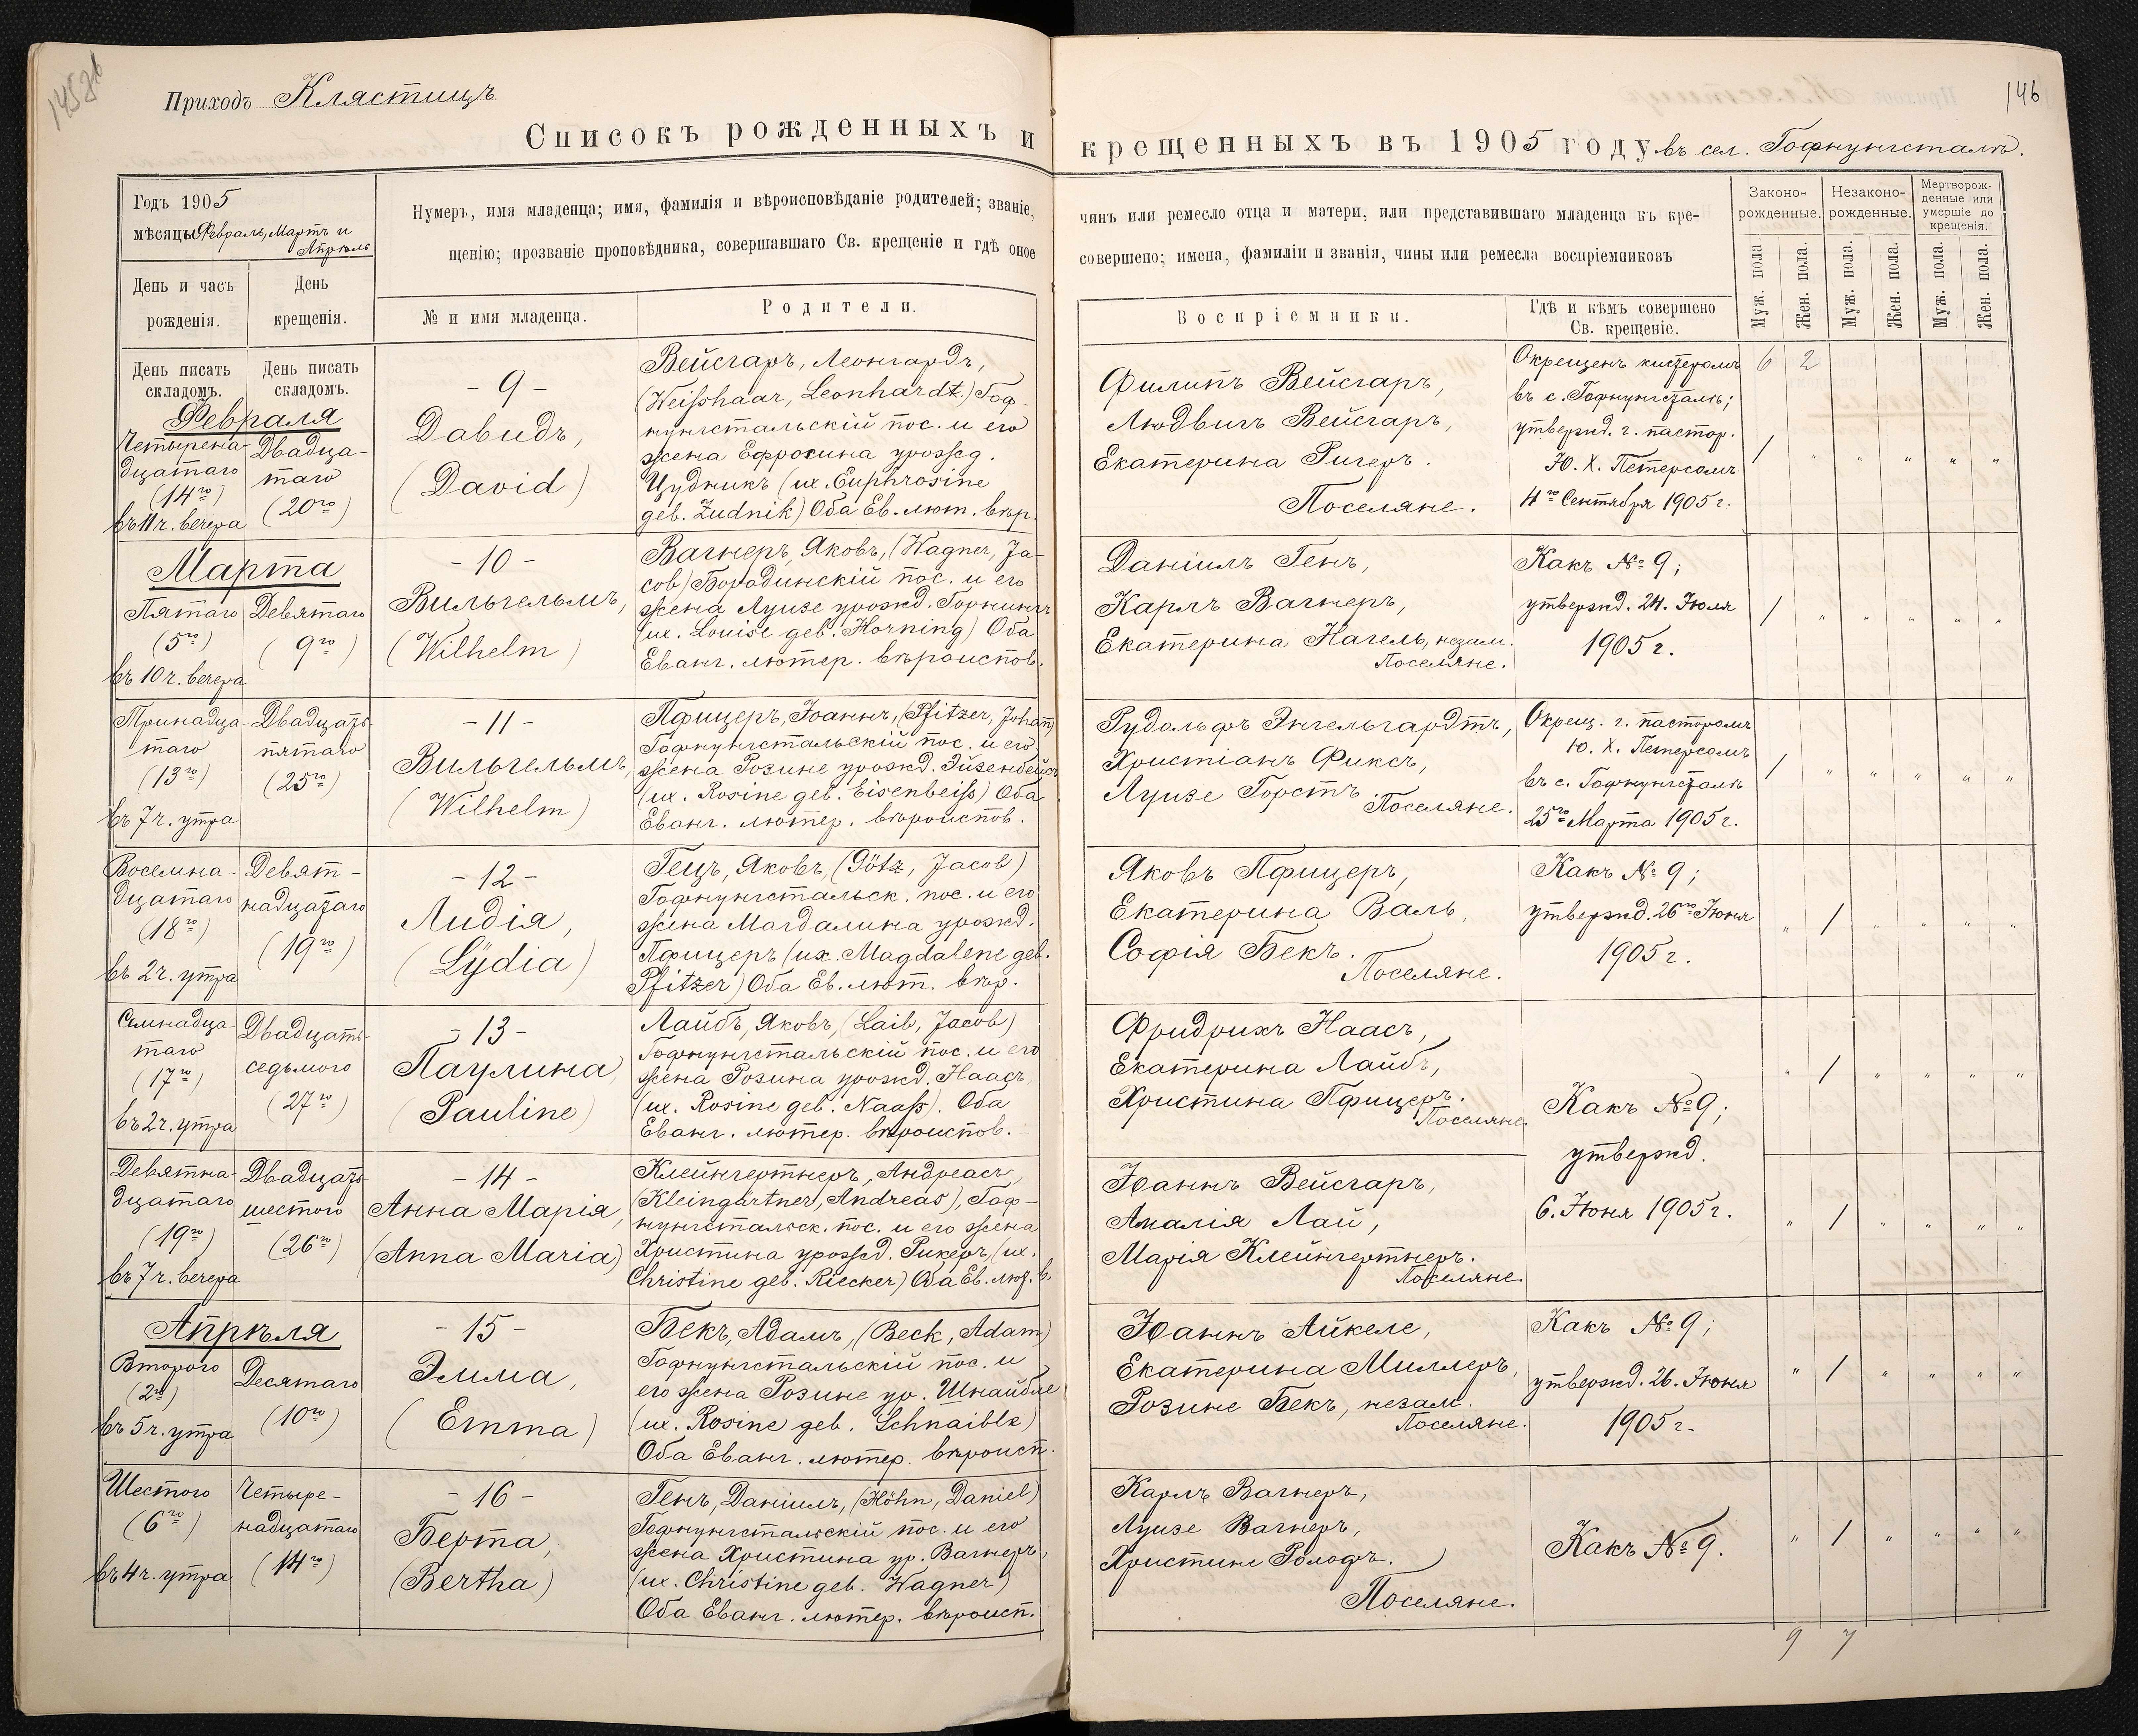 145 об
Приходъ Клястицъ
146
Списокъ рожденныхъ и крещенныхъ въ 1905 году въ сел. Гофнунгсталѣ.
Годъ 1905
мѣсяцы Февраль, Мартъ и
Апрѣль
Нумеръ, имя младенца; имя, фамилія и вѣроисповѣданіе родителей; званіе, чинъ или ремесло отца и матери, или представившаго младенца къ кре-
щенію; прозваніе проповѣдника, совершавшаго Св. крещеніе и гдѣ оное совершено; имена, фамиліи и званія, чины или ремесла воспріемниковъ
Законо-
рожденные.
Незаконо-
рожденные.
Мертворож-
денные или
умершіе до
крещенія.
День и часъ
рожденія.
День
крещенія.
№ и имя младенца.
Родители.
Воспріемники.
Гдѣ и кѣмъ совершено
Св. крещеніе.
Муж. пола
Жен. пола.
Муж. пола.
Жен. пола.
Муж. пола.
Жен. пола.
День писать
складомъ.
День писать
складомъ.
Февраля
Четырена-
дцатаго
(14го)
въ 11 ч. вечера
Двадца-
таго
(20го)
- 9 -
Давидъ,
(David)
Вейсгаръ, Леонгардъ,
(Weißhaar, Leonhardt.) Гоф-
нунгстальскій пос. и его
жена Ефросина урожд.
Цудникъ (их. Euphrosine
geb. Zudnik) Оба Ев. лют. вѣр.
Филипъ Вейсгаръ,
Людвигъ Вейсгаръ,
Екатерина Ригеръ.
Поселяне.
Окрещенъ кистеромъ
въ с. Гофнунгсталѣ;
утвержд. г. пастор.
Ю. Х. Петерсомъ
4го Сентября 1905 г.
6 2
1 " " " " "
Марта
Пятаго
(5го)
въ 10 ч. вечера
Девятаго
(9го)
- 10 -
Вильгельмъ,
(Wilhelm)
Вагнеръ, Яковъ, (Wagner, Ja-
cob) Бородинскій пос. и его
жена Луизе урожд. Горнингъ
(их. Louise geb. Horning) Оба
Еванг. лютер. вѣроиспов.
Даніилъ Генъ,
Карлъ Вагнеръ,
Екатерина Нагель, незам.
Поселяне.
Какъ № 9;
утвержд. 24. Июля
1905 г.
1 " " " " "
Тринадца-
таго
(13го)
въ 7 ч. утра
Двадцать
пятаго
(25го)
- 11 -
Вильгельмъ,
(Wilhelm)
Пфицеръ, Іоаннъ, (Pfitzer, Johan)
Гофнунгстальскій пос. и его
жена Розине урожд. Эйзенбейсъ
(их. Rosine geb. Eisenbeiß) Оба
Еванг. лютер. вѣроиспов.
Рудольфъ Энгельгардтъ,
Христіанъ Фиксъ,
Луизе Горстъ.
Поселяне.
Окрещ. г. пасторомъ
Ю. Х. Петерсомъ
въ с. Гофнунгсталѣ
25го Марта 1905 г.
1 " " " " "
Восемна-
дцатаго
(18го)
въ 2 ч. утра
Девят-
надцатаго
(19го)
- 12 -
Лидія,
(Lÿdia)
Гецъ, Яковъ, (Götz, Jacob)
Гофнунгстальск. пос. и его
жена Магдалина урожд.
Пфицеръ (их. Magdalene geb.
Pfitzer) Оба Ев. лют. вѣр.
Яковъ Пфицеръ,
Екатерина Валь,
Софія Бекъ.
Поселяне.
Какъ № 9;
утвержд. 26го Июня
1905 г.
" 1 " " " "
Семнадца-
таго
(17го)
въ 2 ч. утра
Двадцать
седьмого
(27го)
- 13 -
Паулина,
(Pauline)
Лайбъ, Яковъ, (Laib, Jacob)
Гофнунгстальскій пос. и его
жена Розина урожд. Наасъ
(их. Rosine geb. Naaß). Оба
Еванг. лютер. вѣроиспов. -
Фридрихъ Наасъ,
Екатерина Лайбъ,
Христина Пфицеръ.
Поселяне.
Какъ № 9;
утвержд.
6. Июня 1905 г.
" 1 " " " "
Девятна-
дцатаго
(19го)
въ 7 ч. вечера
Двадцать
шестого
(26го)
- 14 -
Анна Марія,
(Anna Maria)
Клейнгертнеръ, Андреасъ,
(Kleingärtner, Andreas), Гоф-
нунгстальск. пос. и его жена
Христина урожд. Рикеръ, (их.
Christine geb. Riecker) Оба Ев. лют. в.
Іоаннъ Вейсгаръ,
Амалія Лай,
Марія Клейнгертнеръ.
Поселяне.
" 1 " " " "
Апрѣля
Второго
(2го)
въ 5 ч. утра
Десятаго
(10го)
- 15 -
Эмма,
(Emma)
Бекъ, Адамъ, (Beck, Adam)
Гофнунгстальскій пос. и
его жена Розине ур. Шнайбле
(их. Rosine geb. Schnaible)
Оба Еванг. лютер. вѣроисп.
Іоаннъ Айкеле,
Екатерина Миллеръ,
Розине Бекъ, незам.
Поселяне.
Какъ № 9;
утвержд. 26. Июня
1905 г.
" 1 " " " "
Шестого
(6го)
въ 4 ч. утра
Четыре-
надцатаго
(14го)
- 16 -
Берта,
(Bertha)
Генъ, Даніилъ, (Höhn, Daniel)
Гофнунгстальскій пос. и его
жена Христина ур. Вагнеръ,
(их. Christine geb. Wagner)
Оба Еванг. лютер. вѣроисп.
Карлъ Вагнеръ,
Луизе Вагнеръ,
Христине Рологъ.
Поселяне.
Какъ № 9.
" 1 " " " "
9 7